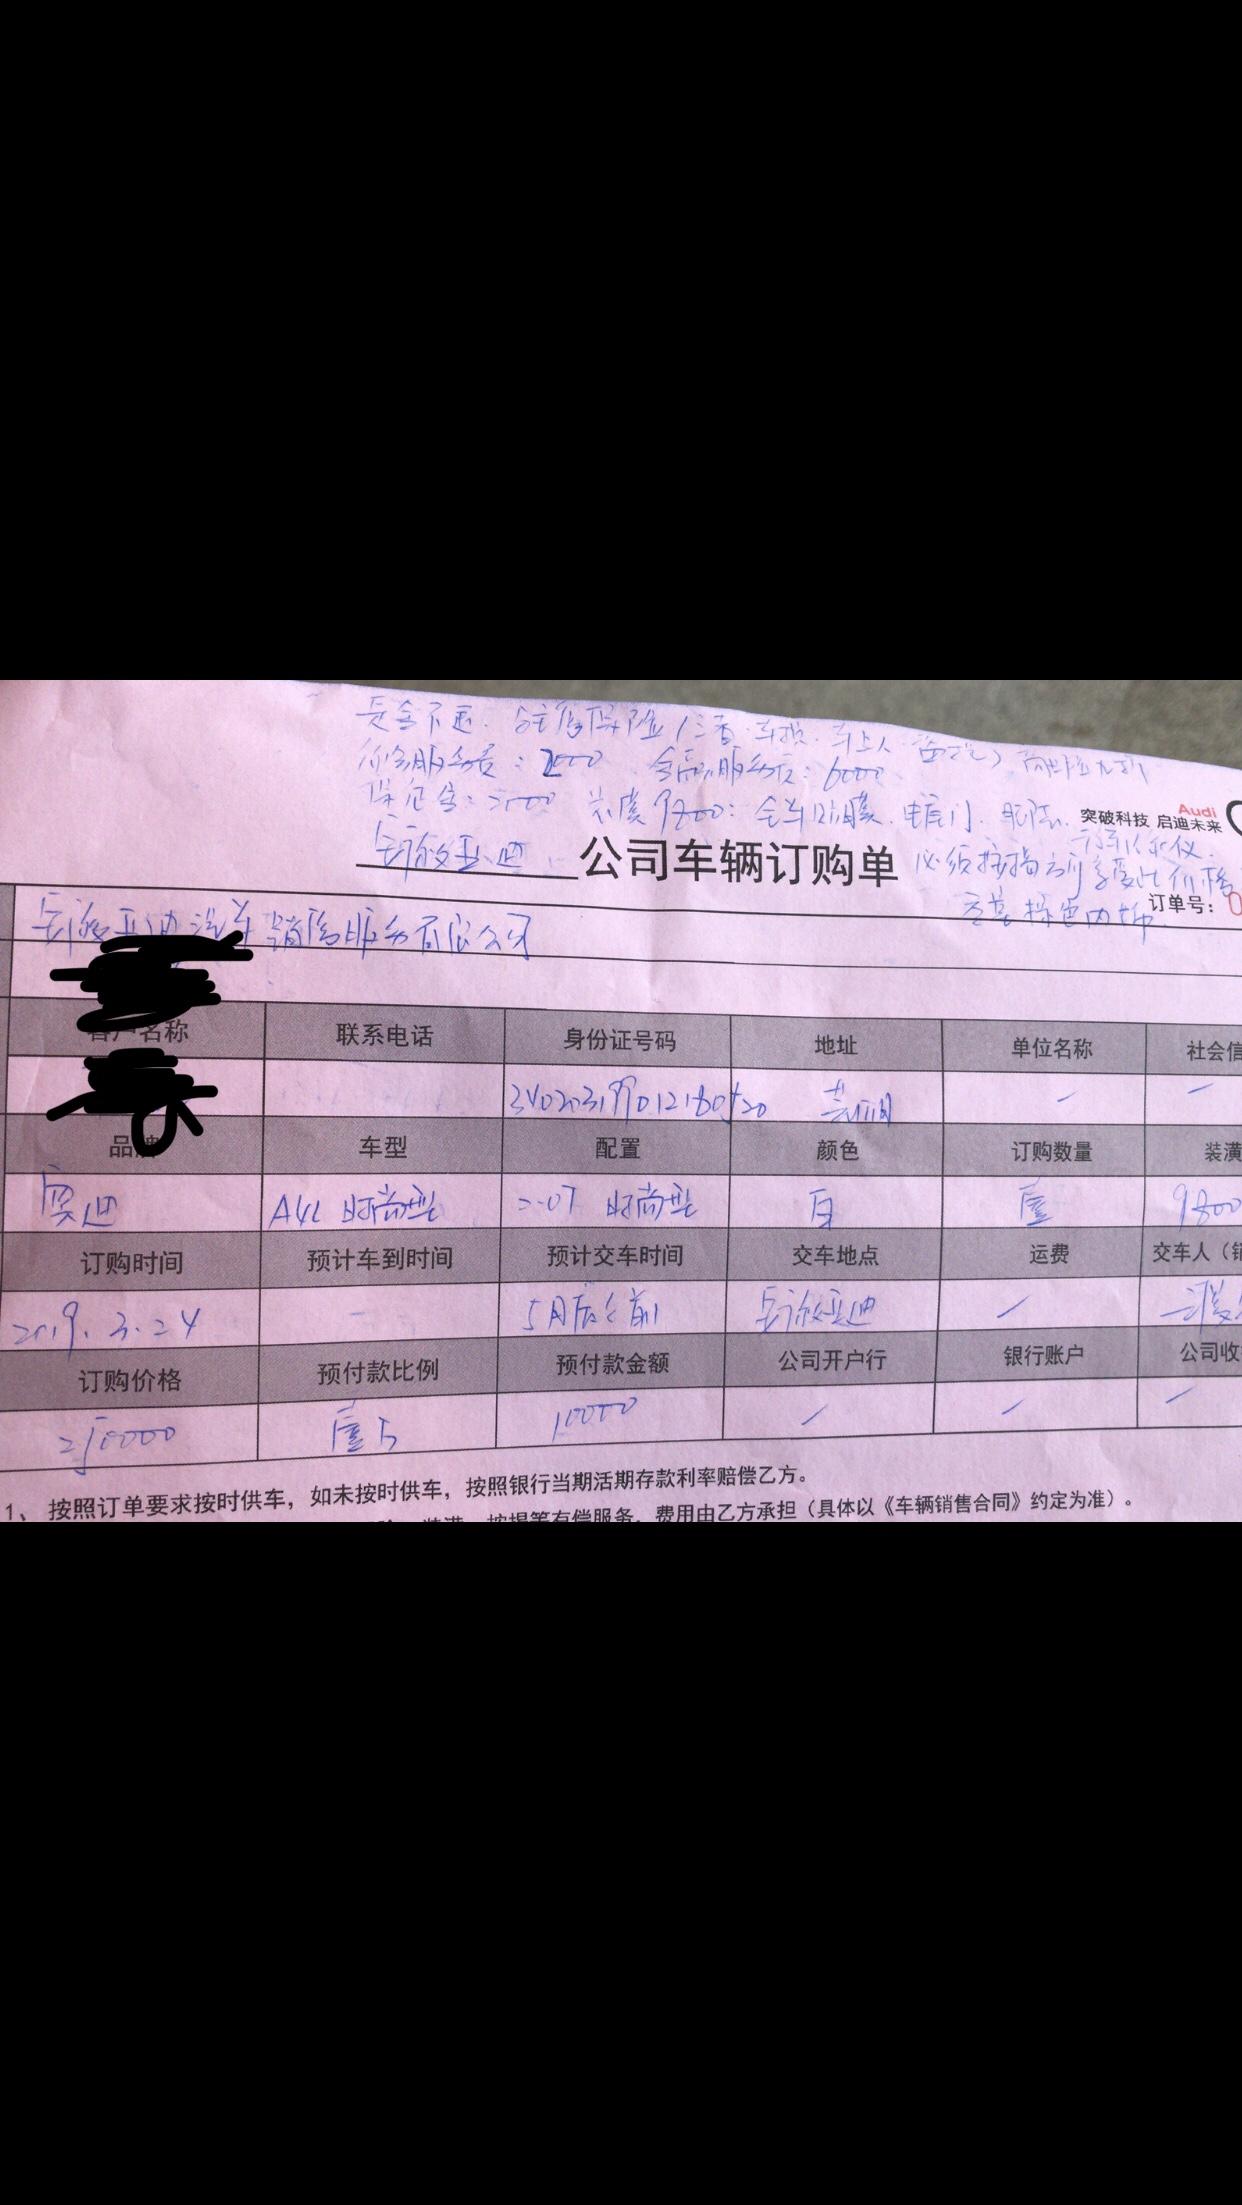 定金不退. 店内保险(三者.车损.车上人.盗抢)商业险九折
服务费:2000 金融服务费:6000
保证金:2000 装潢9800:全车贴膜.电尾门.脚垫.
Audi
突破科技 启迪未来
行车记录仪.
奥迪 公司车辆订购单 必须按揭方可享受此价格
订单号:0
棕色内饰
奥迪汽车销售服务有限公司
客户名称 联系电话 身份证号码 地址 单位名称 社会信
芜湖 — —
品牌 车型 配置 颜色 订购数量 装潢
奥迪 A4L 时尚型 2.0T 时尚型 白 壹 9800
订购时间 预计车到时间 预计交车时间 交车地点 运费 交车人(销
2019.3.24 — 5月底之前 奥迪 /
订购价格 预付款比例 预付款金额 公司开户行 银行账户 公司收
250000 10000 / / /
1、按照订单要求按时供车，如未按时供车，按照银行当期活期存款利率赔偿乙方。
装潢、按揭等有偿服务，费用由乙方承担（具体以《车辆销售合同》约定为准）。